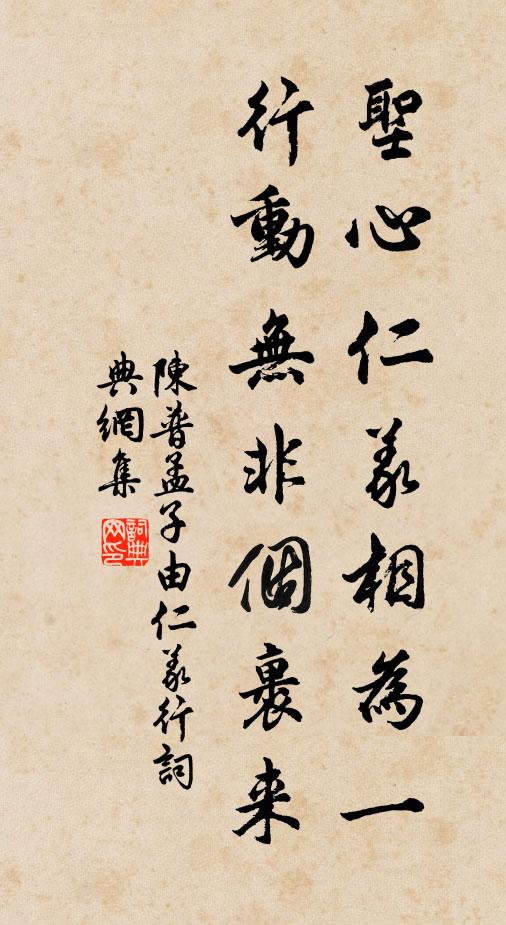 聖心仁義相為一
行動無非個裏来
陳普孟子由仁義行詞
典網集
詞典網印